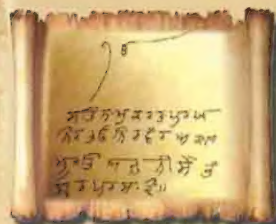 ੴ
ਸਤਿਨਾਮੁ ਕਰਤਾਪੁਰਖ
ਨਿਰਭਉ ਨਿਰਵੈਰ ਅਕਾਲ
ਮੂਰਤਿ ਅਜੂਨੀ ਸੈਭੰ
ਗੁਰਪ੍ਰਸਾਦਿ॥